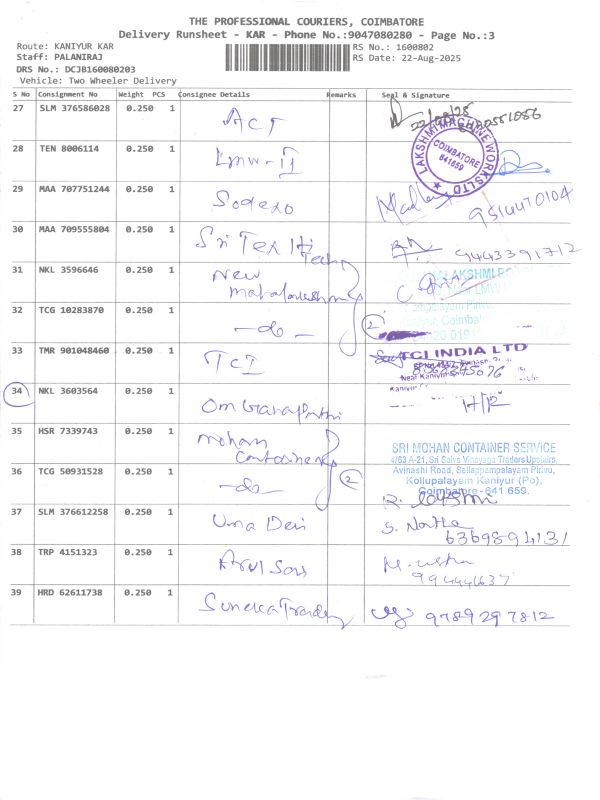 THE PROFESSIONAL COURIERS, COIMBATORE
Delivery Runsheet - KAR - Phone No.:9047080280 - Page No.:3
Route: KANIYUR KAR
RS No.: 1600802
Staff: PALANIRAJ
RS Date: 22-Aug-2025
DRS No.: DCJB160080203
Vehicle: Two Wheeler Delivery
S No Consignment No Weight PCS Consignee Details Remarks Seal & Signature
27 SLM 376586028 0.250 1 ACT 22/08/25
28 TEN 8006114 0.250 1 LMW-II LAKSHMI MACHINE WORKS LTD COIMBATORE 641659
29 MAA 707751244 0.250 1 Sodexo 9514470104
30 MAA 709555804 0.250 1 Sri Tex Hi Tech 9443391712
31 NKL 3596646 0.250 1 New Mahalakshmi LAKSHMI
32 TCG 10283870 0.250 1 -do- 2
33 TMR 901048460 0.250 1 TCI TCI INDIA LTD
34 NKL 3603564 0.250 1 Om Ganapathi
35 HSR 7339743 0.250 1 Mohan Containers SRI MOHAN CONTAINER SERVICE
4/63 A-21, Sri Selva Vinayaga Traders Upstairs,
Avinashi Road, Sellappampalayam Pirivu,
Kollupalayam Kaniyur (Po),
Coimbatore - 641 659.
36 TCG 50931528 0.250 1 -do- 2
37 SLM 376612258 0.250 1 Uma Devi 6369894131
38 TRP 4151323 0.250 1 Arul Sons
39 HRD 62611738 0.250 1 9789297812